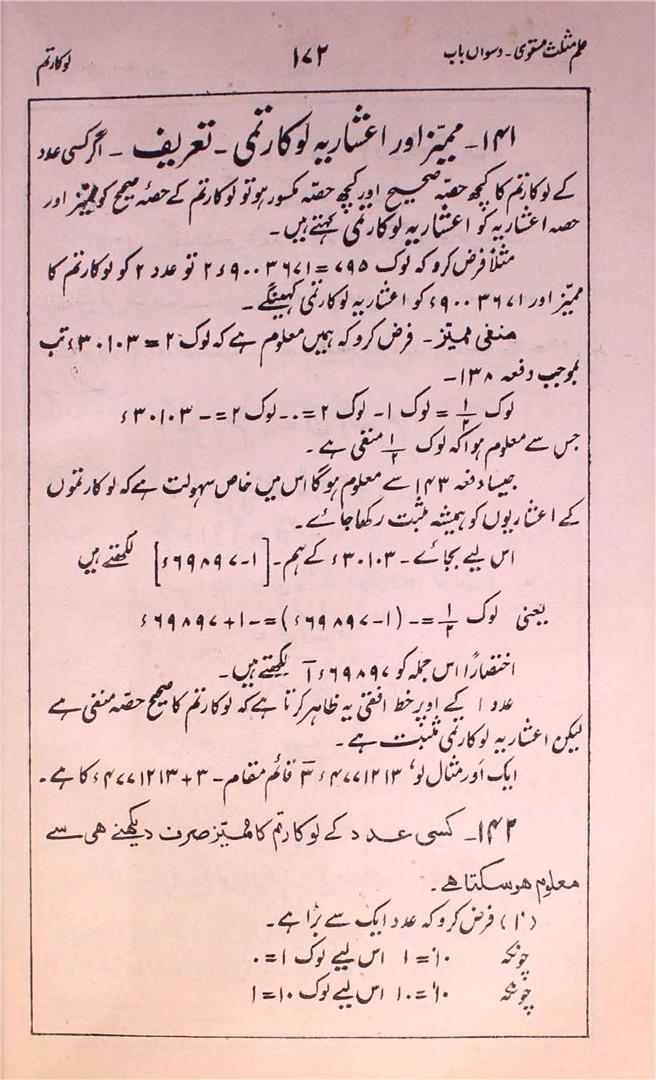 علم مثلث مستوی۔ دسواں باب ۱۷۲ لوکارتم
۱۴۱۔ ممیّز اور اعشاریہ لوکارتمی۔ تعریف ۔ اگر کسی عدد
کے لوکارتم کا کچھ حصّہ صحیح اور کچھ حصّہ مکسور ہو تو لوکارتم کے حصۂ صحیح کو ممیّز اور
حصہ اعشاریہ کو اعشاریہ لوکارتمی کہتے ہیں۔
مثلاً فرض کرو کہ لوک ۷۹۵ = ۲۶۹۰۰۳۶۷۱ تو عدد ۲ کو لوکارتم کا
ممیّز اور ۶۹۰۰۳۶۷۱ کو اعشاریہ لوکارتمی کہینگے۔
منفی ممیّز۔ فرض کرو کہ ہمیں معلوم ہے کہ لوک ۲ = ۶۳۰۱۰۳ تب
بموجب دفعہ ۱۳۸۔
لوک ۱/۲ = لوک ۱۔ لوک ۲ = ۰۔ لوک ۲ = - ۶۳۰۱۰۳
جس سے معلوم ہوا کہ لوک ۱/۲ منفی ہے ۔
جیسا دفعہ ۱۴۳ سے معلوم ہوگا اس میں خاص سہولت ہے کہ لوکارتموں
کے اعشاریوں کو ہمیشہ مثبت رکھا جائے۔
اس لیے بجائے ۔ ۶۳۰۱۰۳ کے ہم ۔ [۱ - ۶۶۹۸۹۷] لکھتے ہیں
یعنی لوک ۱/۲ = - (۱ - ۶۶۹۸۹۷) = - ۱ + ۶۶۹۸۹۷
اختصاراً اس جملہ کو ۱̄۶۶۹۸۹۷ لکھتے ہیں۔
عدد ۱ کے اوپر خط افقی یہ ظاہر کرتا ہے کہ لوکارتم کا صحیح حصّہ منفی ہے
لیکن اعشاریہ لوکارتمی مثبت ہے ۔
ایک اَور مثال لو، ۳̄۶۴۷۷۱۲۱۳ قائم مقام - ۳ + ۶۴۷۷۱۲۱۳ کا ہے ۔
۱۴۲۔ کسی عدد کے لوکارتم کا ممیّز صرف دیکھنے ھی سے
معلوم ھوسکتا ہے۔
(۱) فرض کرو کہ عدد ایک سے بڑا ہے ۔
چونکہ ۱۰⁰ = ۱ اس لیے لوک ۱ = ۰
چونکہ ۱۰¹ = ۱۰ اس لیے لوک ۱۰ = ۱